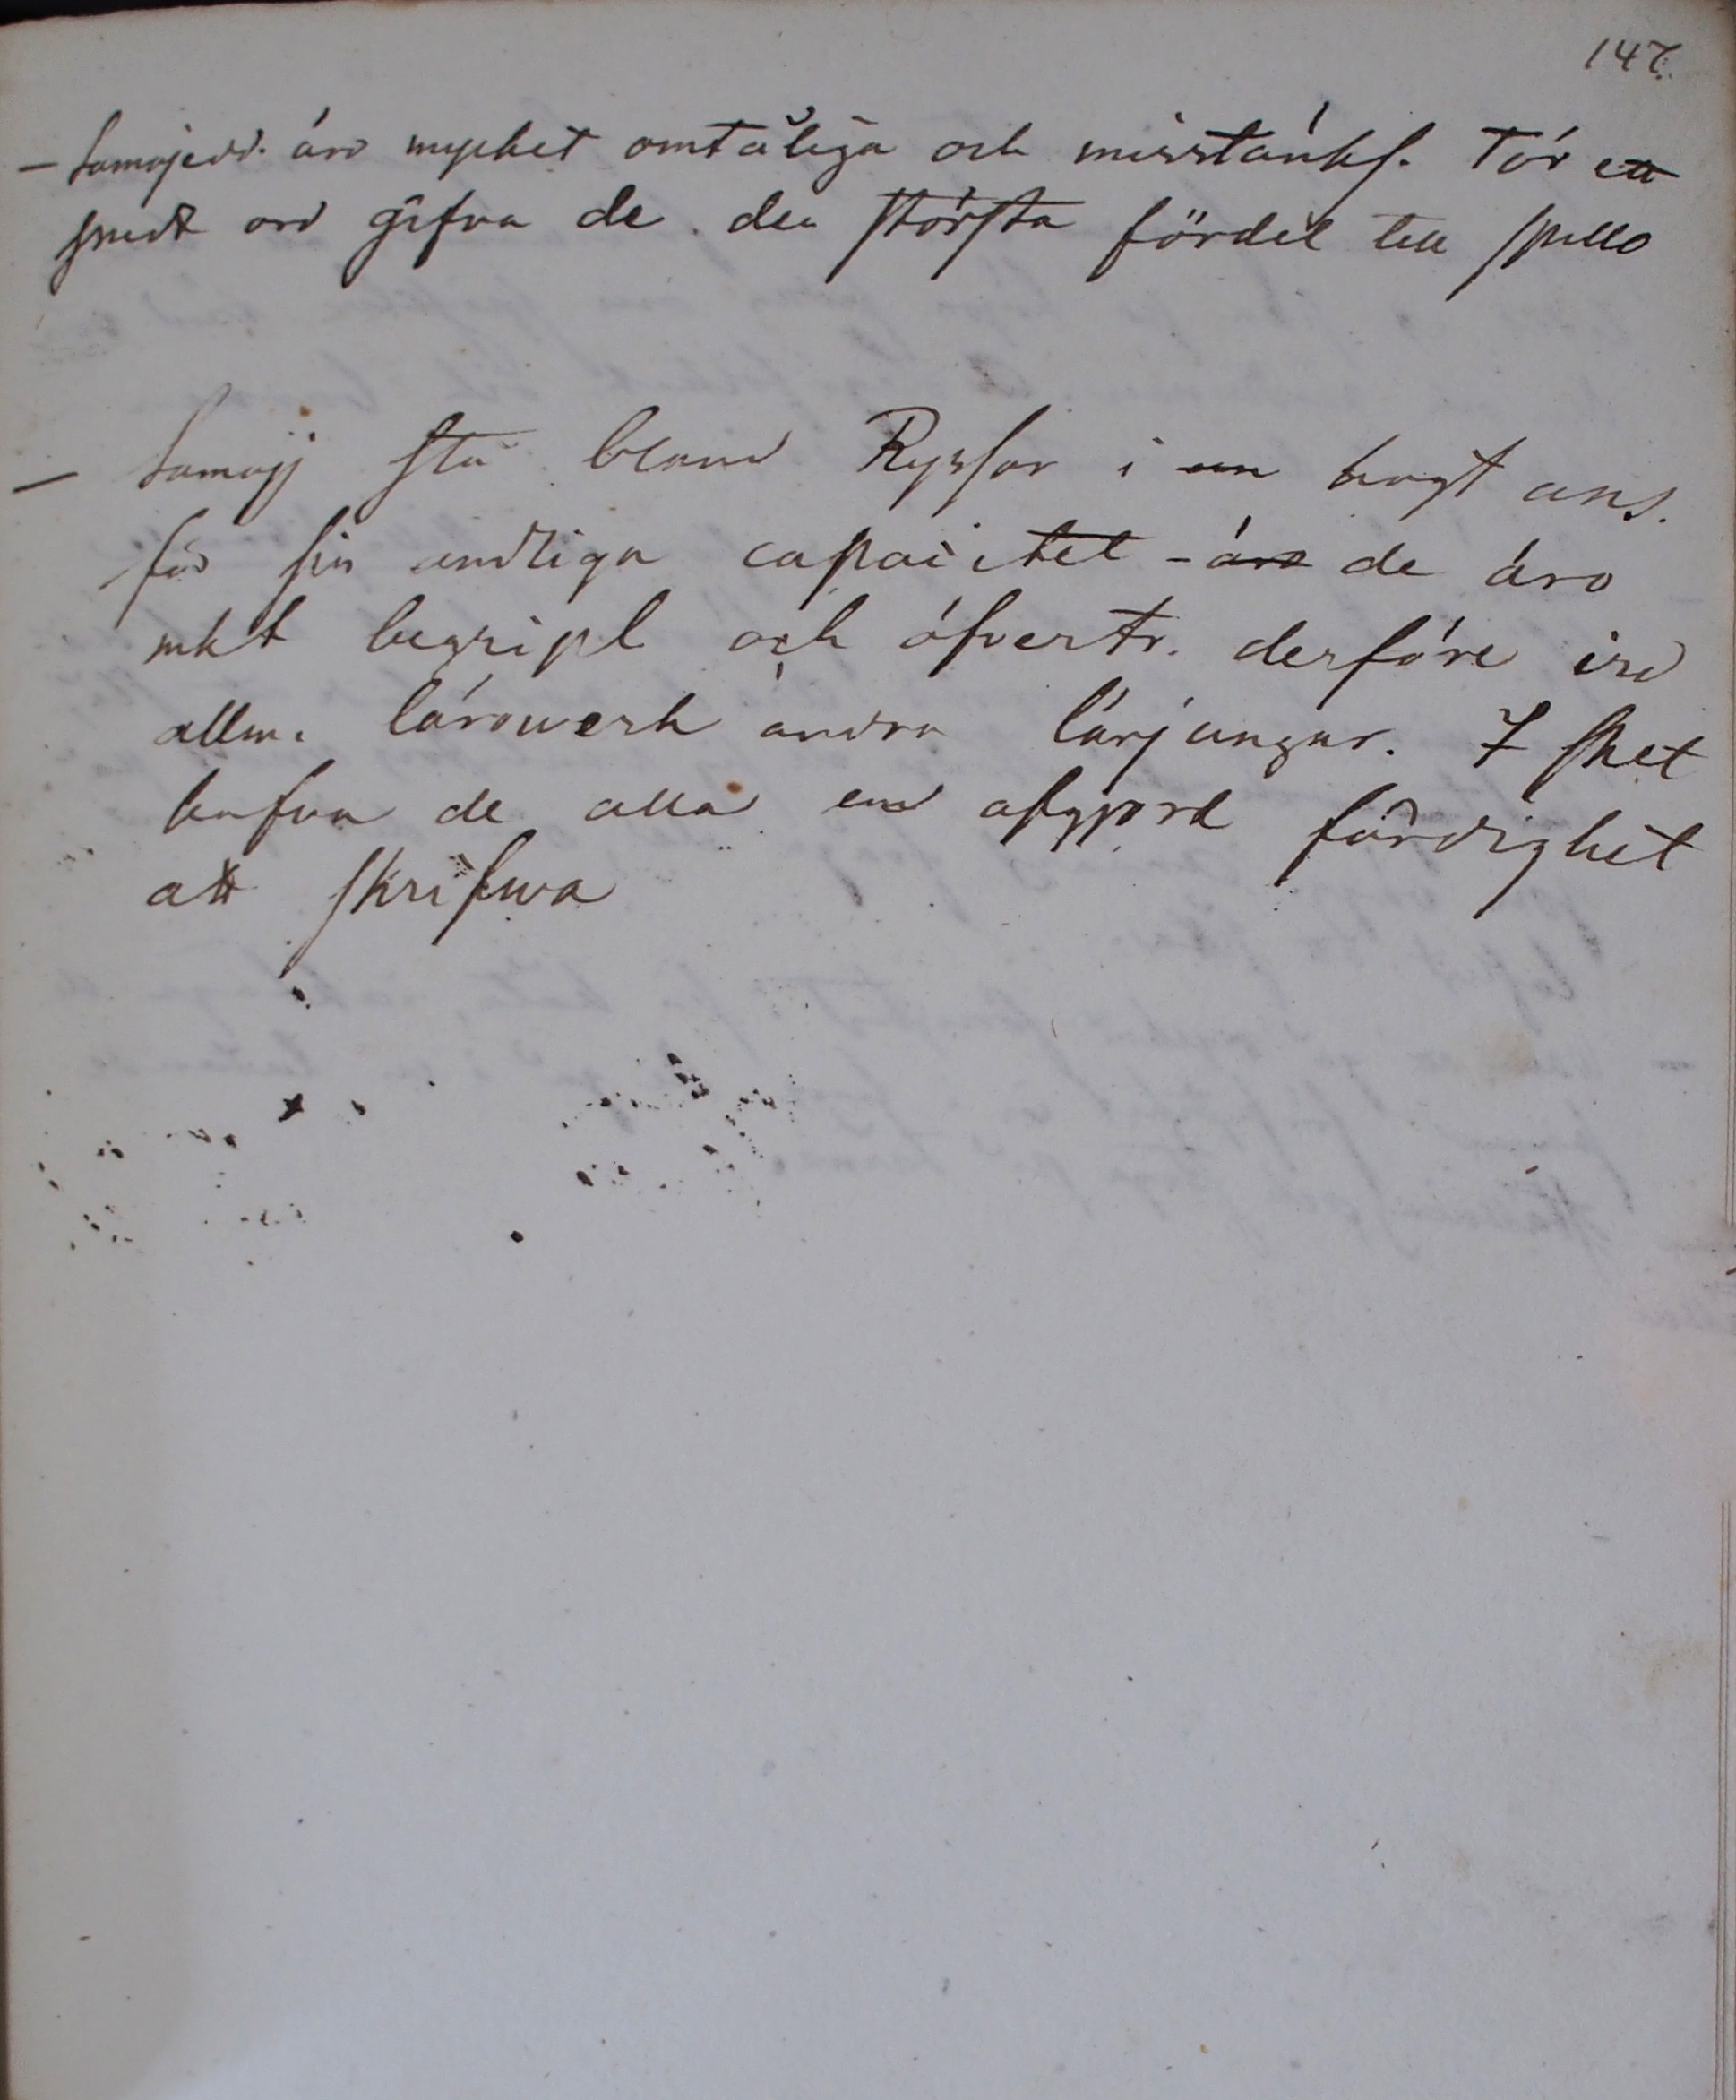 147.
— Samojedd. äro mycket omtåliga och misstänks. För ett
snedt ord gifva de den största fördel till spillo
— Samojj stå bland Ryssar i en högt ans.
för sin andliga capacitet - äro de äro
mkt begripl och öfvertr. derföre
allm. lärowerk andra lärjungar. I
hafva de alla en afgjord färdighet
att skrifwa